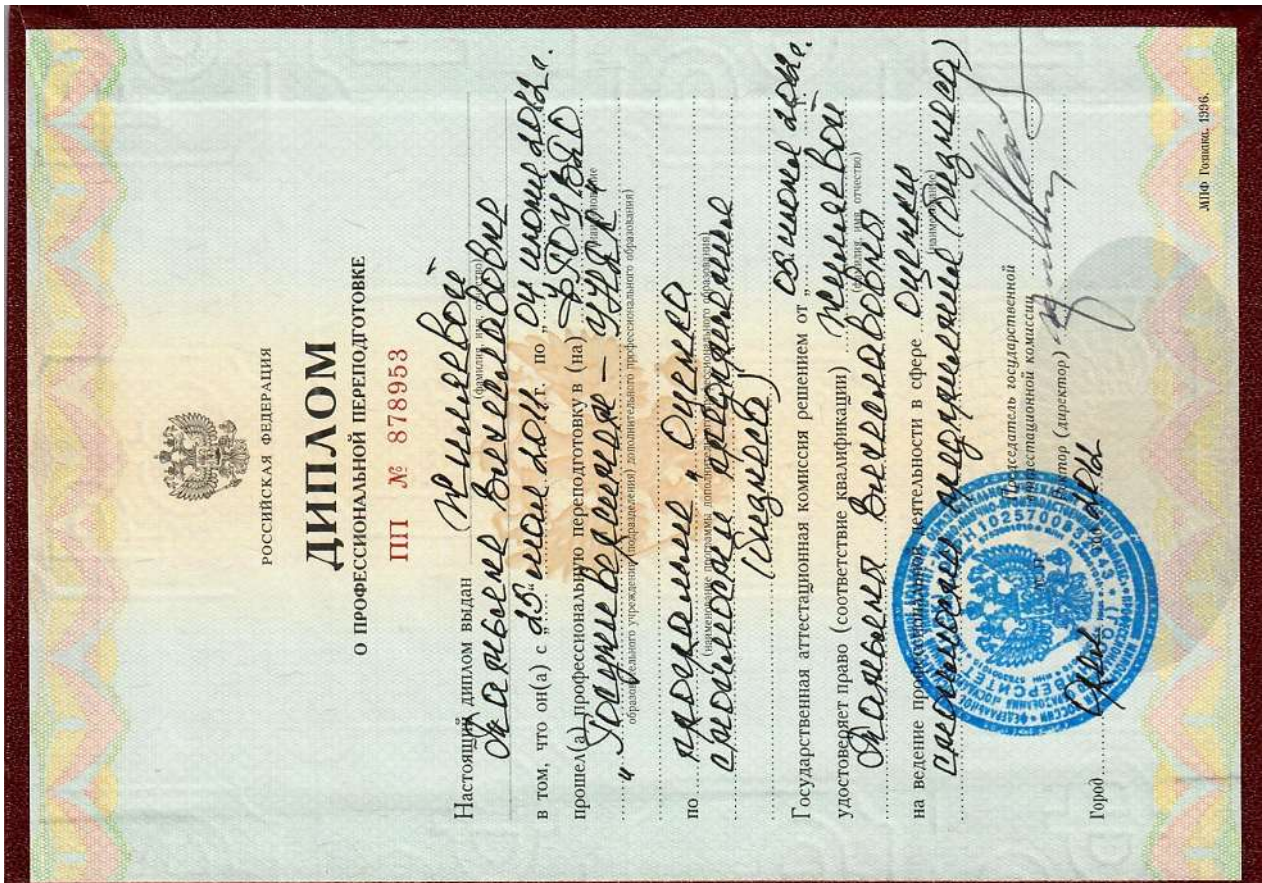 РОССИЙСКАЯ ФЕДЕРАЦИЯ
ДИПЛОМ
О ПРОФЕССИОНАЛЬНОЙ ПЕРЕПОДГОТОВКЕ
ПП № 878953
Настоящий диплом выдан
(фамилия, имя, отчество)
Татьяне Вячеславовне
в том, что он(а) с „25“ мая 2011 г. по „04 июня 2012 г.
прошел(а) профессиональную переподготовку в (на) ФГОУ ВПО
(наименование
„Госуниверситет - УНПК“
образовательного учреждения (подразделения) дополнительного профессионального образования)
по программе „Оценка
(наименование программы дополнительного профессионального образования)
стоимости предприятия
(бизнеса)“
Государственная аттестационная комиссия решением от „05 июня 2012 г.
удостоверяет право (соответствие квалификации)
(фамилия, имя, отчество)
Татьяны Вячеславовны
на ведение профессиональной деятельности в сфере оценки
(наименование)
стоимости предприятия (бизнеса)
Председатель государственной
аттестационной комиссии
Ректор (директор)
Город Орел 2012
МПФ Гознака. 1996.